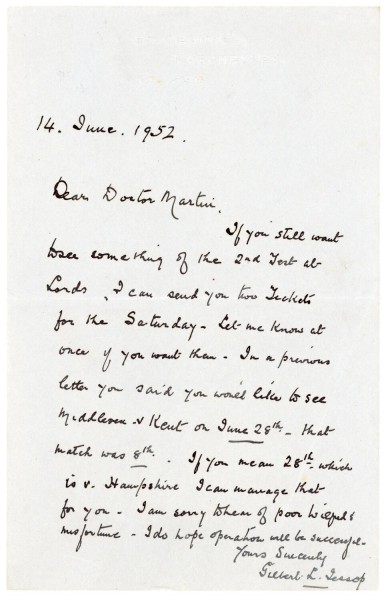 14. June. 1952.
Dear Doctor Martin,
If you still want
to see something of the 2nd Test at
Lords, I can send you two Tickets
for the Saturday - Let me know at
once if you want them - In a previous
letter you said you would like to see
Middlesex v Kent on June 28th - that
match was 8th. If you mean 28th which
is v. Hampshire I can manage that
for you - I am sorry to hear of poor
misfortune - I do hope operation will be successful -
Yours Sincerely
Gilbert L. Jessop